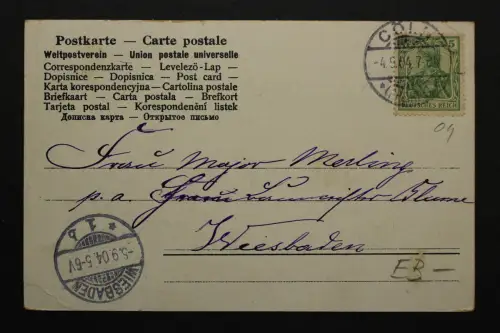 Postkarte — Carte postale
Weltpostverein — Union postale universelle
Correspondenzkarte — Levelező-Lap —
Dopisnice — Dopisnica — Post card —
Karta korespondencyjna — Cartolina postale
Briefkaart — Carta postala — Brefkort
Tarjeta postal — Korespondenční listek
Дописна карта — Открытое письмо
CÖLN
-4.9.04.7-
5
DEUTSCHES REICH
04
Frau Major Merling
p. a. Frau Baumeister Blume
Wiesbaden
* 1 b
-5.9.04.5-6V
WIESBADEN